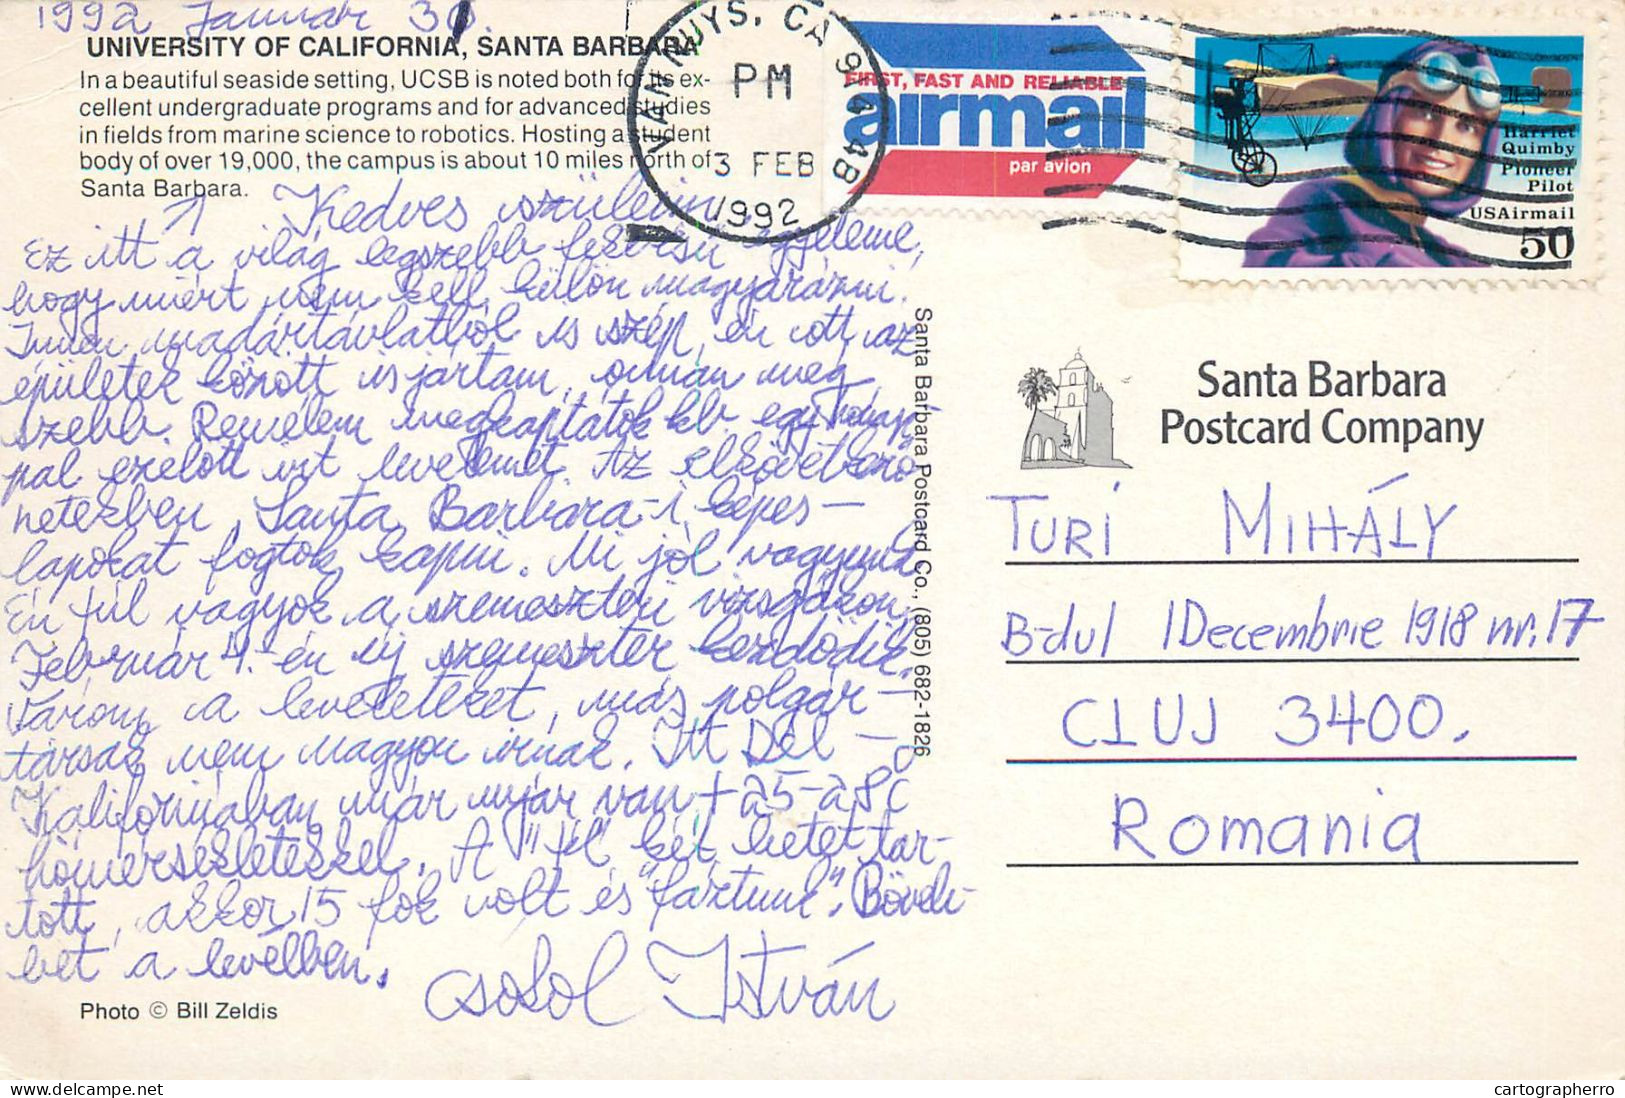 1992 Január 30.
UNIVERSITY OF CALIFORNIA, SANTA BARBARA
In a beautiful seaside setting, UCSB is noted both for its ex-
cellent undergraduate programs and for advanced studies
in fields from marine science to robotics. Hosting a student
body of over 19,000, the campus is about 10 miles north of
Santa Barbara.
VAN NUYS, CA 914048
PM
3 FEB
1992
FIRST, FAST AND RELIABLE
airmail
par avion
Harriet
Quimby
Pioneer
Pilot
USAirmail
50
Kedves szüleim,
Ez itt a világ legszebb fekvésű egyeteme,
hogy miért nem kell külön magyarázni.
Innen madártávlatból is szép, én ott az
épületek között is jártam, onnan még
szebb. Remélem megkaptátok kb. egy hónap-
pal ezelőtt írt levelemet. Az elkövetkező
hetekben Santa Barbara-i képes-
lapokat fogtok kapni. Mi jól vagyunk
Én túl vagyok a szemeszteri vizsgákon,
Február 4.-én új szemeszter kezdődik.
Várom a leveleteket, más polgár-
társak nem nagyon írnak. Itt Dél-
Kaliforniában már nyár van +25-28 C
hőmérsékletekkel. A "tél" két hetet tar-
tott, akkor 15 fok volt és "fáztunk". Bőveb-
bet a levélben.
csókol István
Photo © Bill Zeldis
Santa Barbara Postcard Co., (805) 682-1826
Santa Barbara
Postcard Company
TURI MIHÁLY
B-dul 1 Decembrie 1918 nr. 17
CLUJ 3400.
ROMANIA
cartographerro